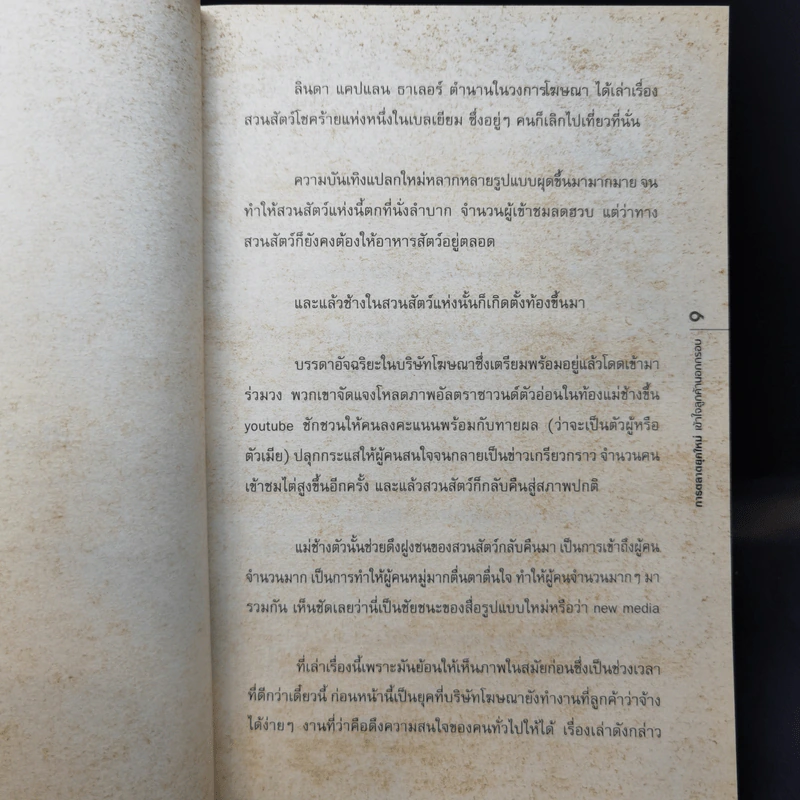 ลินดา แคปแลน ธาเลอร์ ตำนานในวงการโฆษณา ได้เล่าเรื่อง
สวนสัตว์โชคร้ายแห่งหนึ่งในเบลเยียม ซึ่งอยู่ๆ คนก็เลิกไปเที่ยวที่นั่น
ความบันเทิงแปลกใหม่หลากหลายรูปแบบผุดขึ้นมามากมาย จน
ทำให้สวนสัตว์แห่งนี้ตกที่นั่งลำบาก จำนวนผู้เข้าชมลดฮวบ แต่ว่าทาง
สวนสัตว์ก็ยังคงต้องให้อาหารสัตว์อยู่ตลอด
และแล้วช้างในสวนสัตว์แห่งนั้นก็เกิดตั้งท้องขึ้นมา
บรรดาอัจฉริยะในบริษัทโฆษณาซึ่งเตรียมพร้อมอยู่แล้วโดดเข้ามา
ร่วมวง พวกเขาจัดแจงโหลดภาพอัลตราซาวนด์ตัวอ่อนในท้องแม่ช้างขึ้น
youtube ชักชวนให้คนลงคะแนนพร้อมกับทายผล (ว่าจะเป็นตัวผู้หรือ
ตัวเมีย) ปลุกกระแสให้ผู้คนสนใจจนกลายเป็นข่าวเกรียวกราว จำนวนคน
เข้าชมไต่สูงขึ้นอีกครั้ง และแล้วสวนสัตว์ก็กลับคืนสู่สภาพปกติ
แม่ช้างตัวนั้นช่วยดึงฝูงชนของสวนสัตว์กลับคืนมา เป็นการเข้าถึงผู้คน
จำนวนมาก เป็นการทำให้ผู้คนหมู่มากตื่นตาตื่นใจ ทำให้ผู้คนจำนวนมากๆ มา
รวมกัน เห็นชัดเลยว่านี่เป็นชัยชนะของสื่อรูปแบบใหม่หรือว่า new media
ที่เล่าเรื่องนี้เพราะมันย้อนให้เห็นภาพในสมัยก่อนซึ่งเป็นช่วงเวลา
ที่ดีกว่าเดี๋ยวนี้ ก่อนหน้านี้เป็นยุคที่บริษัทโฆษณายังทำงานที่ลูกค้าว่าจ้าง
ได้ง่ายๆ งานที่ว่าคือดึงความสนใจของคนทั่วไปให้ได้ เรื่องเล่าดังกล่าว
9
การตลาดยุคใหม่ เข้าใจลูกค้านอกกรอบ